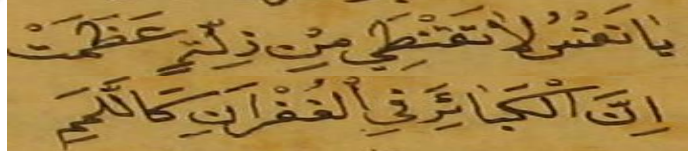 يَا نَفْسُ لَا تَقْنَطِي مِنْ زَلَّةٍ عَظُمَتْ
اِنَّ الْكَبَائِرَ فِي الْغُفْرَانِ كَاللَّمَمِ